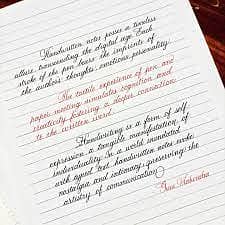 Handwritten notes possess a timeless
allure, transcending the digital age. Each
stroke of the pen bears the imprints of
the author's thoughts, emotions, personality.
The tactile experience of pen and
paper writing stimulates cognition and
creativity, fostering a deeper connection
to the written word.
Handwriting is a form of self
expression, a tangible manifestation of
individuality. In a world inundated
with typed text, handwritten notes evoke
nostalgia and intimacy, preserving the
artistry of communication.